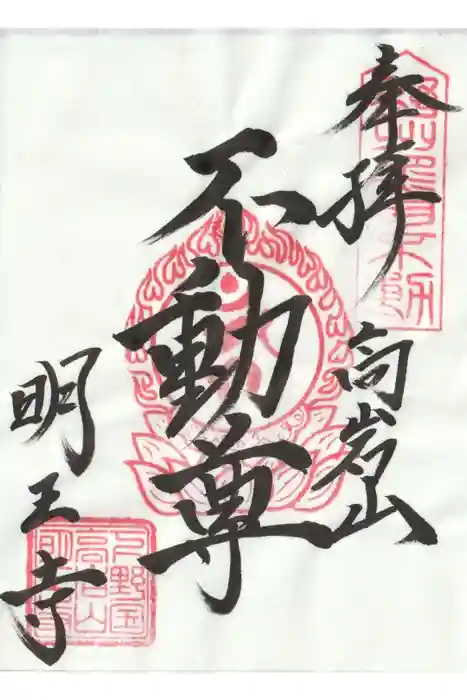 奉拝
高岩山
不動尊
明王寺
下野国
高岩山